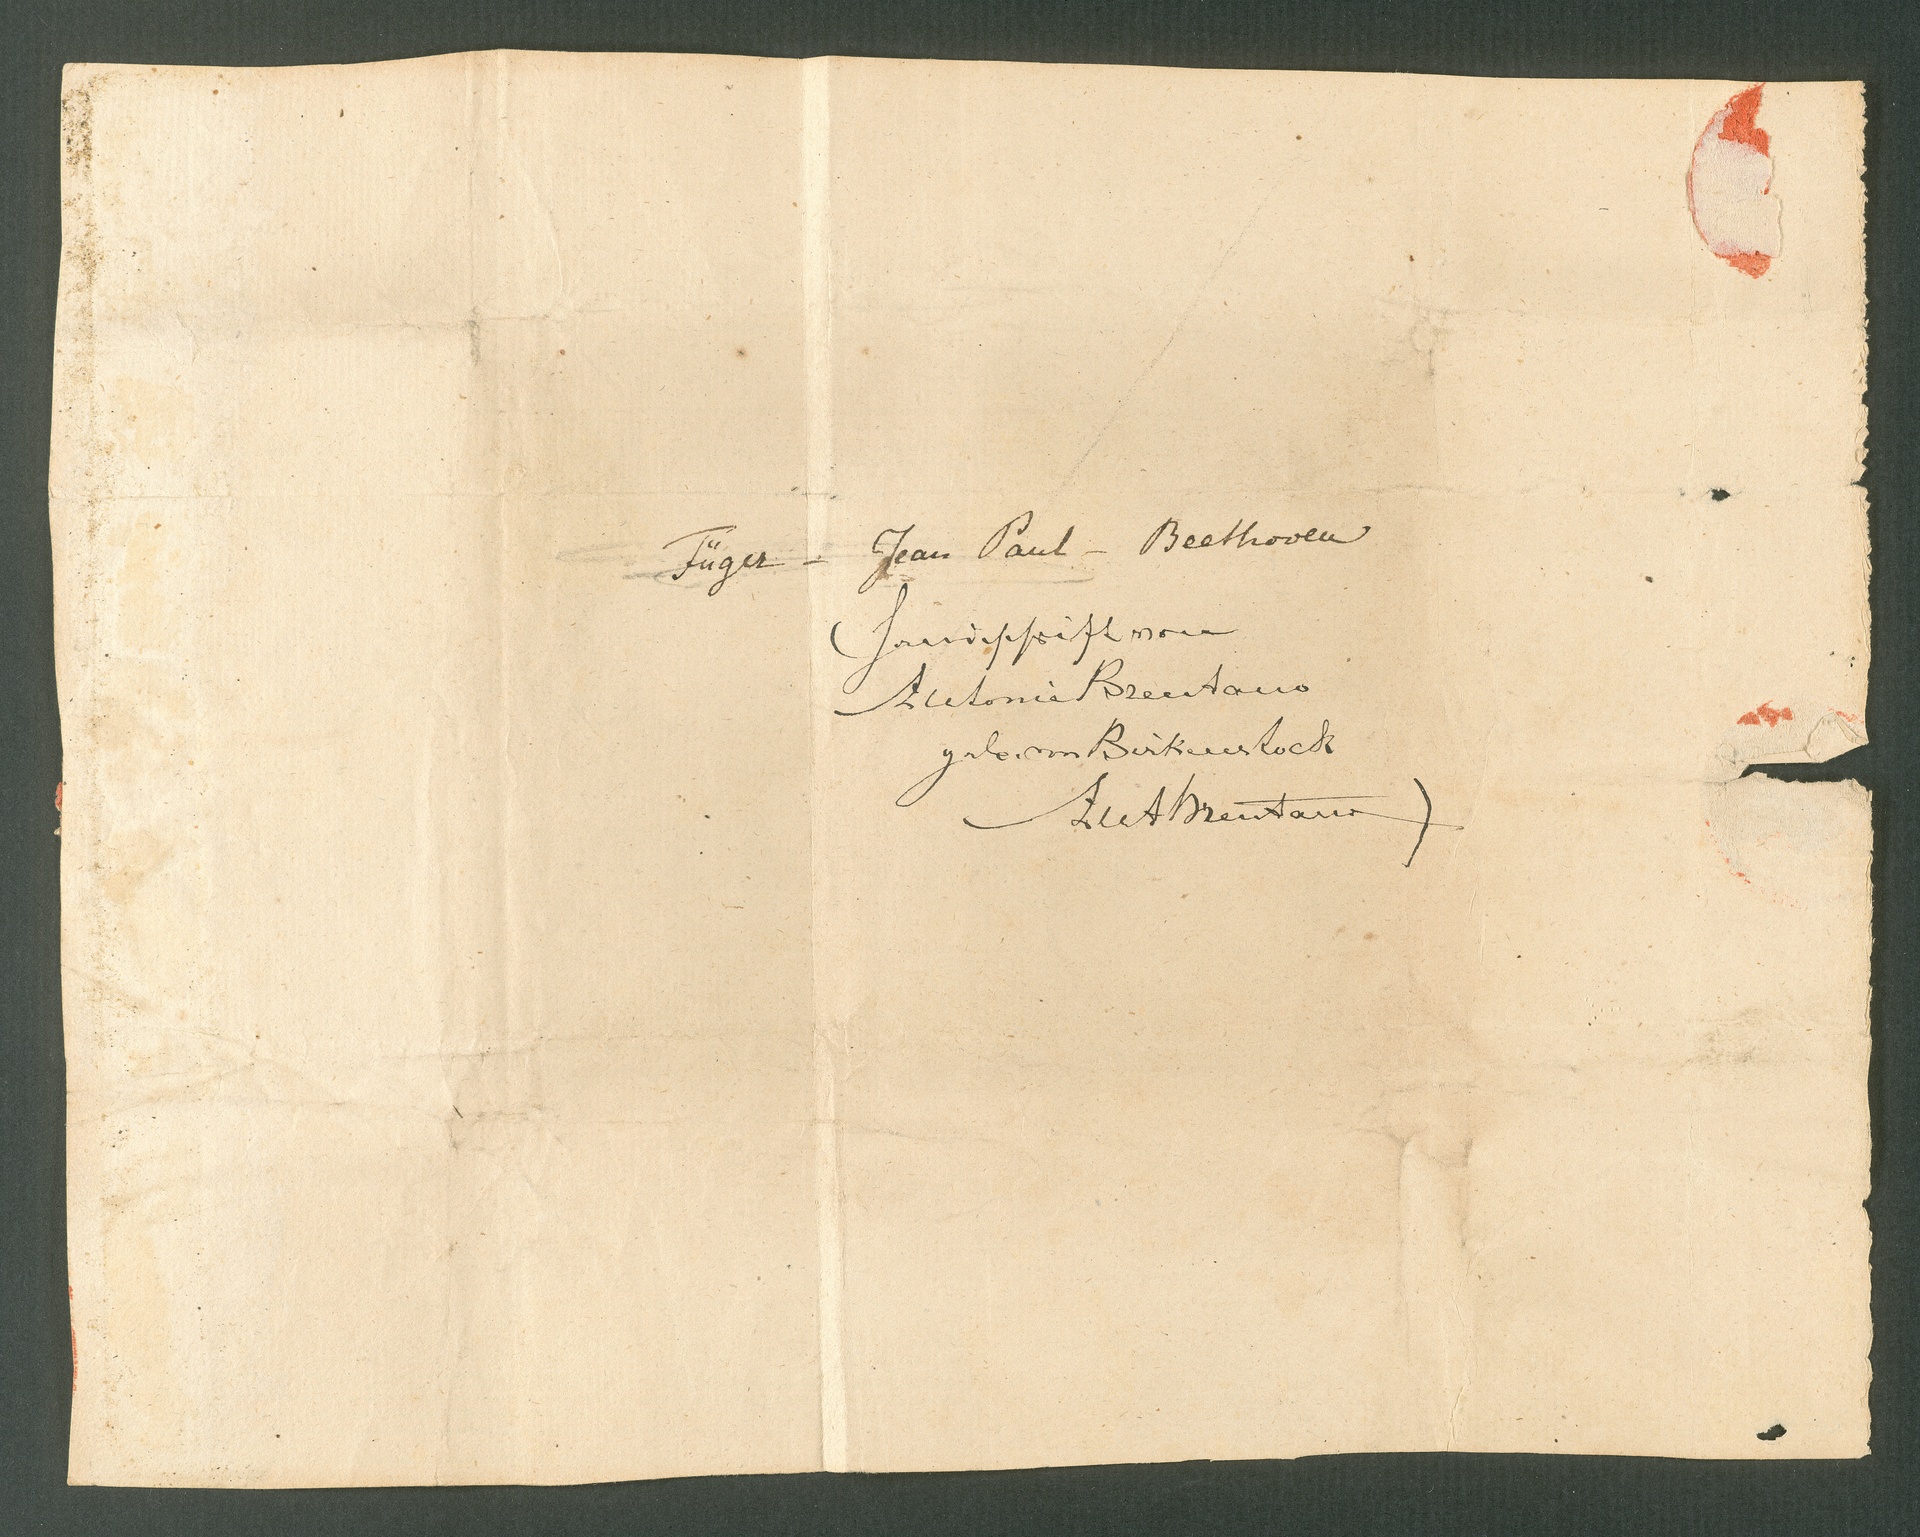 Füger – Jean Paul – Beethoven
(Handschrift von
Antonie Brentano
geb. von Birkenstock
Ant Brentano)